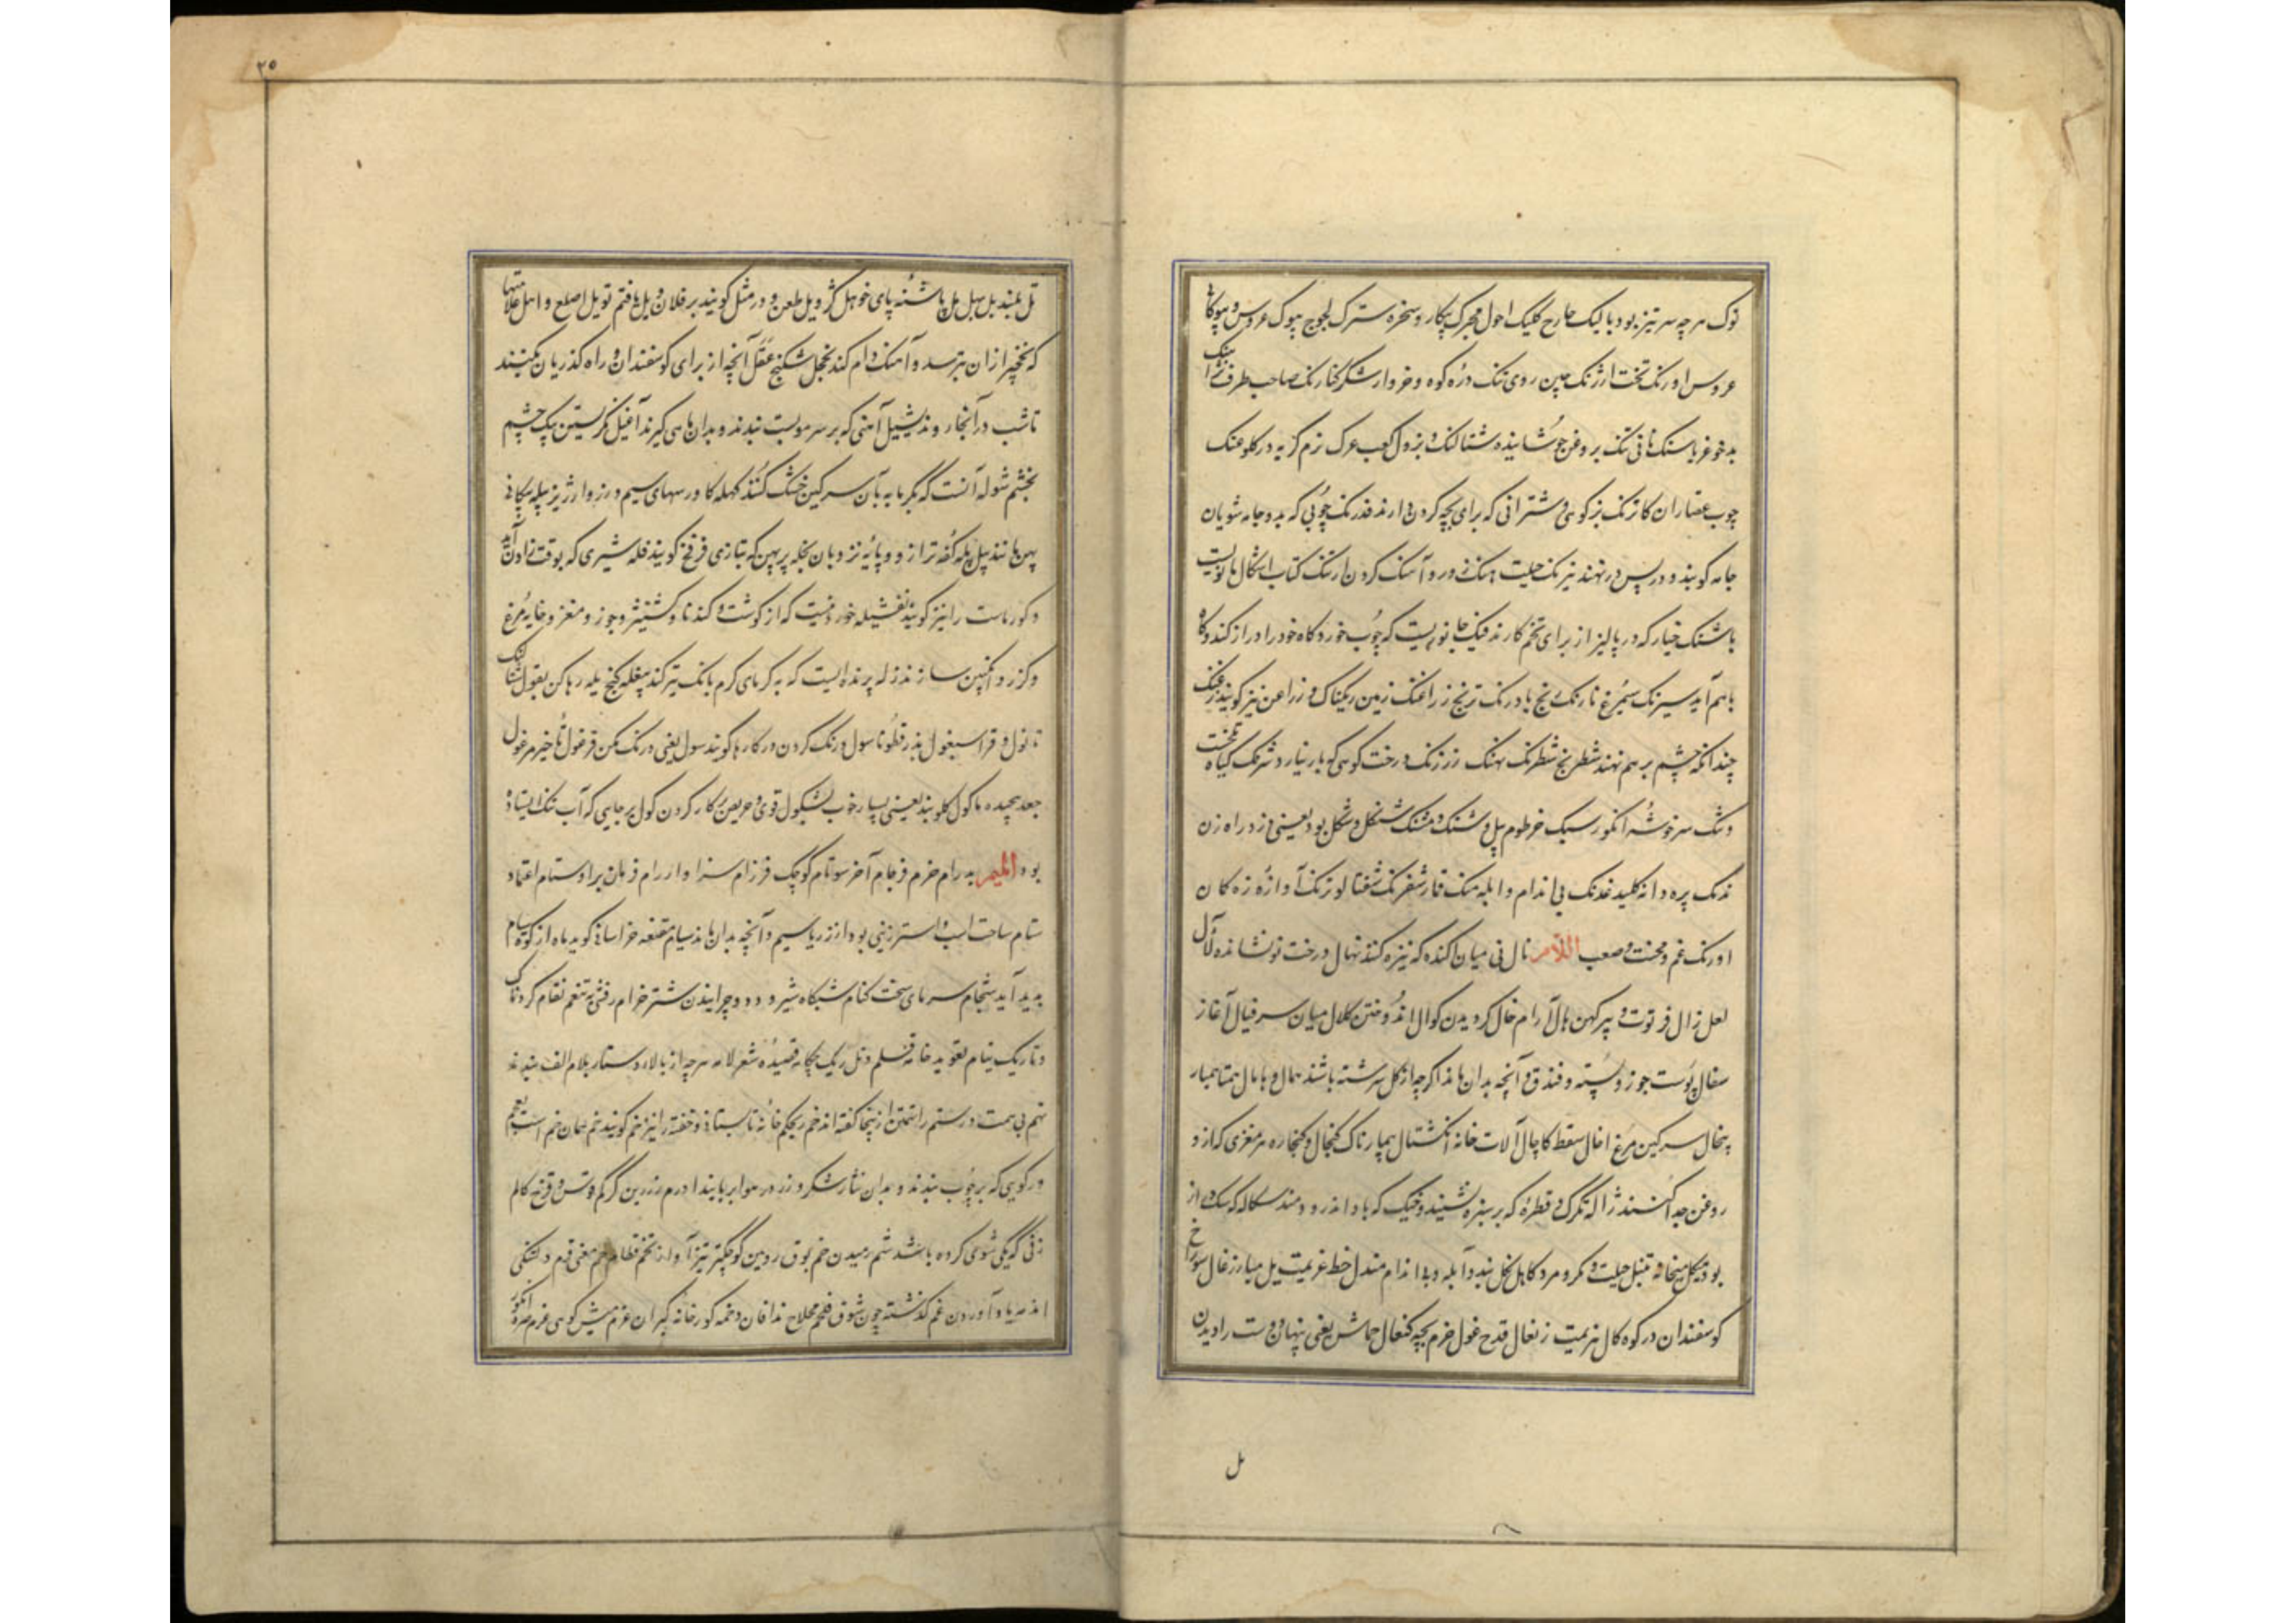 نوک هرچه سر تیز بود بالیک چارح کلیک احول مچرک پیکار و سخره سترک لجوج بیوک عروس و بیوکانی
عروس اورنک تخت ارژنک چین روی تنک درّه کوه و خروار شکر صاحب طرف
بدخو غرباسنک نانی تنک بروغن جوشانیده شتالنک و بزول کعب عرک نرم کریه در کلو غنک
چوب عصّاران کازنک بز کوهی و شترانی که برای بچه کردن دارند فدرنک چوبی که بدو جامه شویان
جامه کویند و در پس در نهند نیرنک حیلت هنک زور و آهنک کردن ارتنک کتاب اشکال مانویست
باشنک خیار که در پالیز از برای تخم کارند فنک جانوریست که چوب خورد کاه خود را دراز کند و کاه
باهم آید سیرنک سیمرغ نارنک رنج بادرنک ترنج زراغنک زمین ریکناک و زراغن نیز کویند
چندانکه چشم برهم نهند شطرنج شطرنک نهنک زرنک درخت کوهی که بار نیارد شرنک کیاه تلخست
ونک سر خوشه انکور سبک خرطوم پیل و شنک و مشنک شنکل و شکل بود یعنی دزد راه زن
ندنک پره دانه کلید غدنک بی اندام و ابله منک قمار شفرنک شفتالو ترنک آوازه زه کمان
اورنک غم و محنت و صعب اللام نال نی میان آکنده که نیزه کنند نهال درخت نو نشانده لال
لعل زال فرتوت و پیر کهن هال آرام خال کردیدن کوال اندوختن کلال میان سر فیال آغاز
سفال پوست جوز و پسته و فندق و آنچه بدان ماند اکرچه از کل سرشته باشند همال و هامال همتا همبار
پیخال سرکین مرغ اخال سقط کاچال آلات خانه انکشتال بیمارناک کنجال و کنجاره هر مغزی که ازو
روغن جدا کنند ژاله تکرک و قطره که بر سبزه نشیند و خیک که باد اندرو دمند سکاله که سک از
بود هیکل بتخانه تنبل حیلت و مکر و مرد کاهل بد و آبله و بی اندام مندل خط عزیمت یل مبارز غال سوراخ
کوسفندان در کوه کال هزیمت زنغال قدح غول خرم بچه کنعال جماش یعنی پنهان دوست را دیدن
مل
۲۵
تل بلند بل بهل پل پاشنه پای خوهل کژ ویل طعن و در مثل کویند بر فلان ویل یافتم تویل اصلع و اهل علامتها
که نخچیر ازان بترسد و آهنک دام کند نخجل شکنج آنچه از برای کوسفندان در راه کذریان کنند
تا شب در آنجا روند شیل آهنی که بر سر موی بست بندند و بدان ماهی کیرند آغیل نکرستین بیک چشم
بخشم شوله آنست که بکرمابه بآن سرکین خشک کنند کهله کاورسهای سیم و زر و ارزیز پیله پیکانی
پهن مانند بیل پله کفه ترازو و پایه نردبان بخله پرپهن که بتازی فرفخ کویند فله شیری که بوقت زادن آید
و کورماست را نیز کویند نغشیله خوردنیست که از کوشت و کندنا و کشنیز و جوز و مغز و خایه مرغ
و کزر و انکبین سازند زله پرنده ایست که بکرمای کرم بانک تیز کند پیغله کنج یله رها کن بغول شتالنک
تابول و قرا سبغول بذر قطونا سول درنک کردن در کارها کویند سول یعنی درنک مکن فرغول تاخیر مرغول
جعد پیچیده ماکول کلوبند یعنی بسیار خوب بشکول قوی و حریص بر کار کردن کول بر جایی که آب تنک ایستاده
بود المیم پدرام خرم فرجام آخر سوتام کوچک فرزام سزاوار رام فرمان بر اوستام اعتماد
ستام ساخت اسب و استر زینی بود از زر یا سیم و آنچه بدان ماند سیام مقنعه خراسانی کوید ماه از کوه سیام
پدید آید شجام سرمای سخت کنام شبکاه شیر و دد و چرانیدن شتر خرام رفتن به تنعم نغام کردناک
و تاریک نیام تعویذ خانه قلم و تل ریک چکامه قصیده شعر لامه هرچه از بالا دستار بلام الف بندند
تهم بی همت و رستم را تهمتن ازینجا کفته اند خم ریحکم خانه تابستانی و خفته را نیز خم کویند خم همان خم است
ورکویی که بر چوب بندند و بدان نثار شکر و زر در هوا بربایند ادرم زره زین کرکم و قوس و قزح کالم
زنی که یکی شوی کرده باشد شم رمیدن خم بوق رویین کوچکتر تیز آواز نخم
اندمه یاد آوردن غم کذشته چون شوق فلخم محلاج ندافان دخمه کورخانه کبران غرم میش کوهی غژم